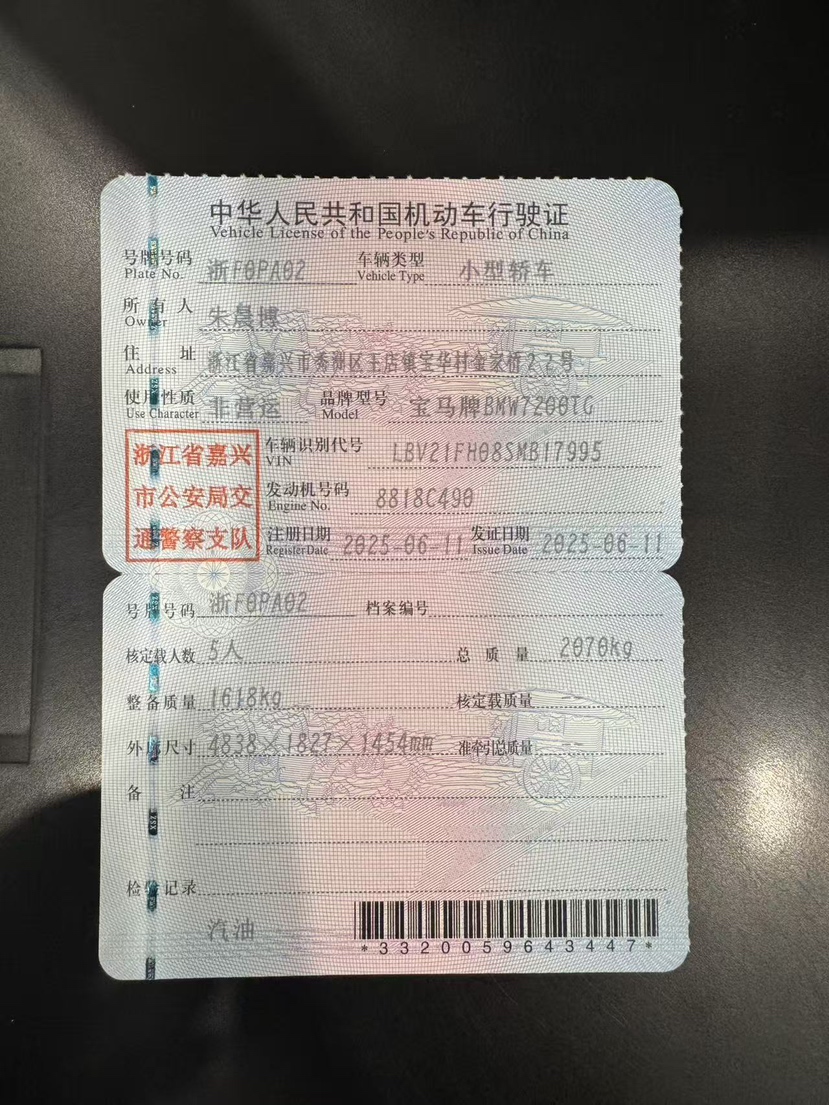 中华人民共和国机动车行驶证
Vehicle License of the People's Republic of China
号牌号码 浙F0PA02 车辆类型 小型轿车
Plate No. Vehicle Type
所有人 朱晨博
Owner
住址 浙江省嘉兴市秀洲区王店镇宝华村金家桥22号
Address
使用性质 非营运 品牌型号 宝马牌BMW7200TG
Use Character Model
浙江省嘉兴
市公安局交
通警察支队
车辆识别代号 LBV21FH08SMB17995
VIN
发动机号码 8818C490
Engine No.
注册日期 2025-06-11 发证日期 2025-06-11
Register Date Issue Date
号牌号码 浙F0PA02 档案编号
核定载人数 5人 总质量 2070kg
整备质量 1618kg 核定载质量 --
外廓尺寸 4838×1827×1454mm 准牵引总质量 --
备注
检验记录
汽油
*3320059643447*